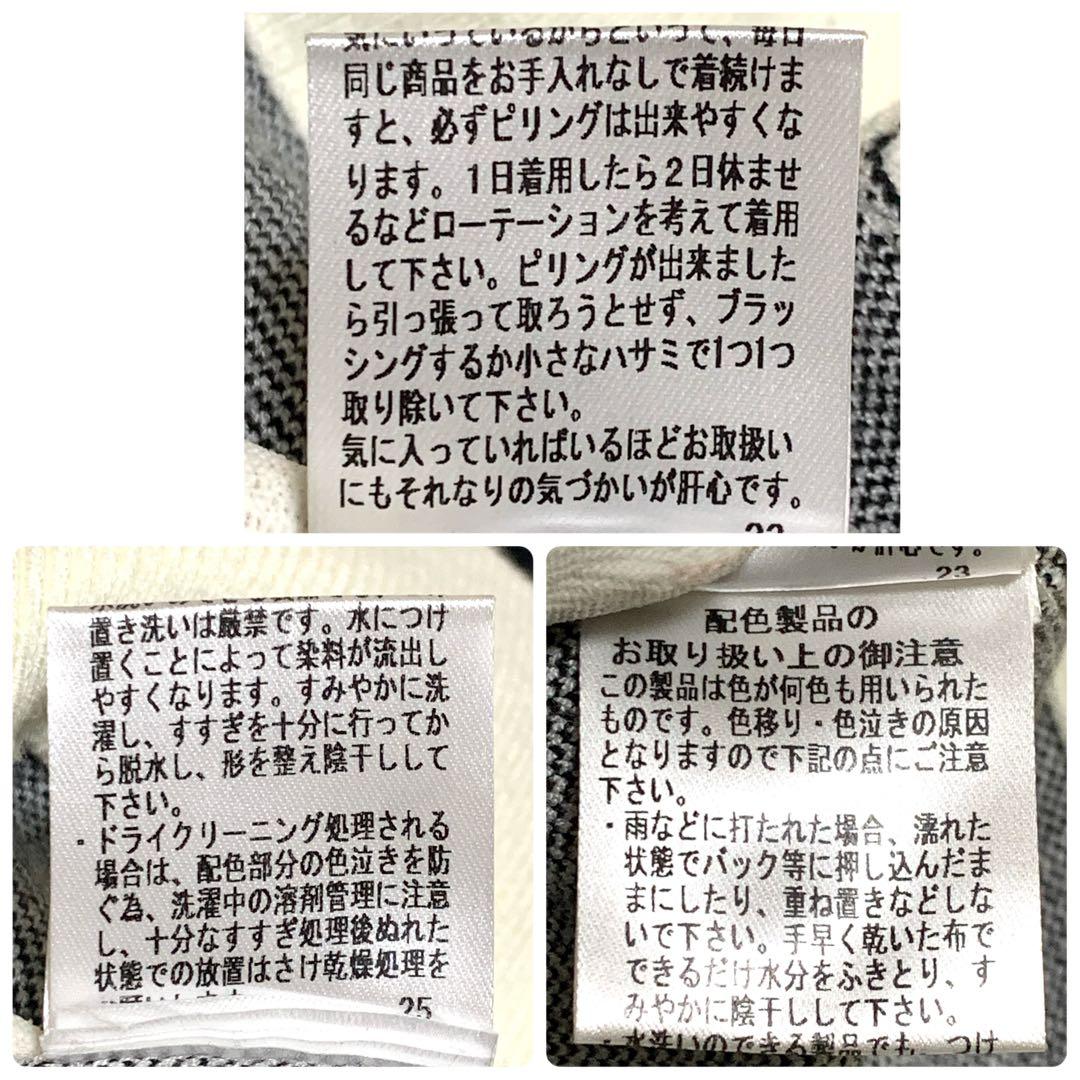 気にいっているからといって、毎日
同じ商品をお手入れなしで着続けま
すと、必ずピリングは出来やすくな
ります。１日着用したら２日休ませ
るなどローテーションを考えて着用
して下さい。ピリングが出来ました
ら引っ張って取ろうとせず、ブラッ
シングするか小さなハサミで1つ1つ
取り除いて下さい。
気に入っていればいるほどお取扱い
にもそれなりの気づかいが肝心です。
23
置き洗いは厳禁です。水につけ
置くことによって染料が流出し
やすくなります。すみやかに洗
濯し、すすぎを十分に行ってか
ら脱水し、形を整え陰干しして
下さい。
・ドライクリーニング処理される
場合は、配色部分の色泣きを防
ぐ為、洗濯中の溶剤管理に注意
し、十分なすすぎ処理後ぬれた
状態での放置はさけ乾燥処理を
25
肝心です。
23
配色製品の
お取り扱い上の御注意
この製品は色が何色も用いられた
ものです。色移り・色泣きの原因
となりますので下記の点にご注意
下さい。
・雨などに打たれた場合、濡れた
状態でバック等に押し込んだま
まにしたり、重ね置きなどしな
いで下さい。手早く乾いた布で
できるだけ水分をふきとり、す
みやかに陰干しして下さい。
・水洗いのできる製品でも、つけ